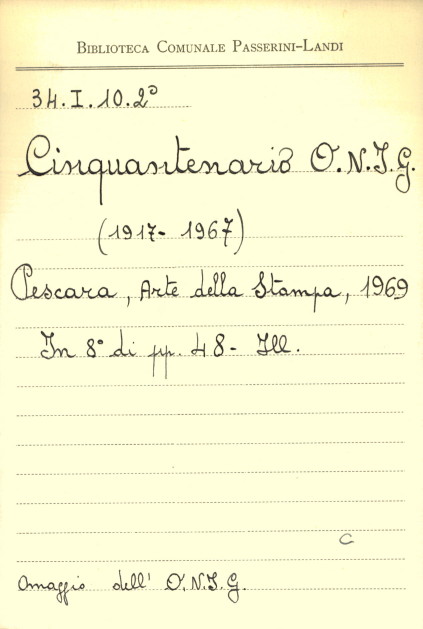 BIBLIOTECA COMUNALE PASSERINI-LANDI
34.I.10.2°
Cinquantenario O.N.I.G.
(1917- 1967)
Pescara, Arte della Stampa, 1969
In 8° di pp. 48- Ill.
C
Omaggio dell' O.N.I.G.